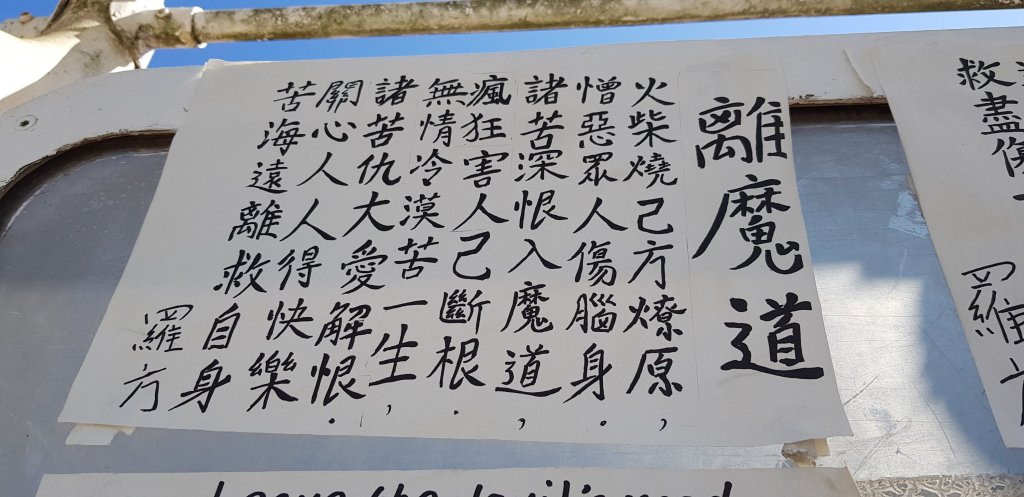 離魔道
火柴燒己方燎原，
憎惡眾人傷腦身。
諸苦深恨入魔道，
瘋狂害人己斷根。
無情冷漠苦一生，
諸苦仇大愛解恨。
關心人人得快樂
苦海遠離救自身
羅方
救盡
羅方
Leave the devil's road